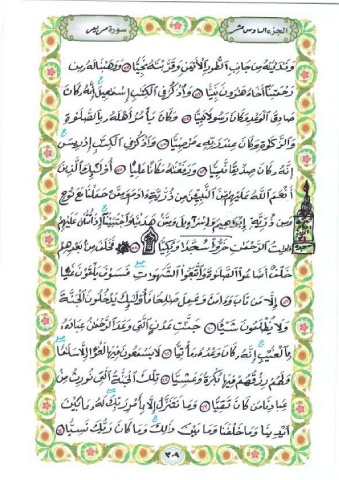 الجزء السادس عشر
سورة مريم
وَنَٰدَيْنَٰهُ مِن جَانِبِ ٱلطُّورِ ٱلْأَيْمَنِ وَقَرَّبْنَٰهُ نَجِيًّا وَوَهَبْنَا لَهُۥ مِن
رَّحْمَتِنَآ أَخَاهُ هَٰرُونَ نَبِيًّا وَٱذْكُرْ فِى ٱلْكِتَٰبِ إِسْمَٰعِيلَ إِنَّهُۥ كَانَ
صَادِقَ ٱلْوَعْدِ وَكَانَ رَسُولًا نَّبِيًّا وَكَانَ يَأْمُرُ أَهْلَهُۥ بِٱلصَّلَوٰةِ
وَٱلزَّكَوٰةِ وَكَانَ عِندَ رَبِّهِۦ مَرْضِيًّا وَٱذْكُرْ فِى ٱلْكِتَٰبِ إِدْرِيسَ
إِنَّهُۥ كَانَ صِدِّيقًا نَّبِيًّا وَرَفَعْنَٰهُ مَكَانًا عَلِيًّا أُو۟لَٰٓئِكَ ٱلَّذِينَ
أَنْعَمَ ٱللَّهُ عَلَيْهِم مِّنَ ٱلنَّبِيِّۦنَ مِن ذُرِّيَّةِ ءَادَمَ وَمِمَّنْ حَمَلْنَا مَعَ نُوحٍ
وَمِن ذُرِّيَّةِ إِبْرَٰهِيمَ وَإِسْرَٰٓءِيلَ وَمِمَّنْ هَدَيْنَا وَٱجْتَبَيْنَآ إِذَا تُتْلَىٰ عَلَيْهِمْ
ءَايَٰتُ ٱلرَّحْمَٰنِ خَرُّوا۟ سُجَّدًا وَبُكِيًّا فَخَلَفَ مِنۢ بَعْدِهِمْ
خَلْفٌ أَضَاعُوا۟ ٱلصَّلَوٰةَ وَٱتَّبَعُوا۟ ٱلشَّهَوَٰتِ فَسَوْفَ يَلْقَوْنَ غَيًّا
إِلَّا مَن تَابَ وَءَامَنَ وَعَمِلَ صَٰلِحًا فَأُو۟لَٰٓئِكَ يَدْخُلُونَ ٱلْجَنَّةَ
وَلَا يُظْلَمُونَ شَيْـًٔا جَنَّٰتِ عَدْنٍ ٱلَّتِى وَعَدَ ٱلرَّحْمَٰنُ عِبَادَهُۥ
بِٱلْغَيْبِ إِنَّهُۥ كَانَ وَعْدُهُۥ مَأْتِيًّا لَّا يَسْمَعُونَ فِيهَا لَغْوًا إِلَّا سَلَٰمًا
وَلَهُمْ رِزْقُهُمْ فِيهَا بُكْرَةً وَعَشِيًّا تِلْكَ ٱلْجَنَّةُ ٱلَّتِى نُورِثُ مِنْ
عِبَادِنَا مَن كَانَ تَقِيًّا وَمَا نَتَنَزَّلُ إِلَّا بِأَمْرِ رَبِّكَ لَهُۥ مَا بَيْنَ
أَيْدِينَا وَمَا خَلْفَنَا وَمَا بَيْنَ ذَٰلِكَ وَمَا كَانَ رَبُّكَ نَسِيًّا
٣٠٩